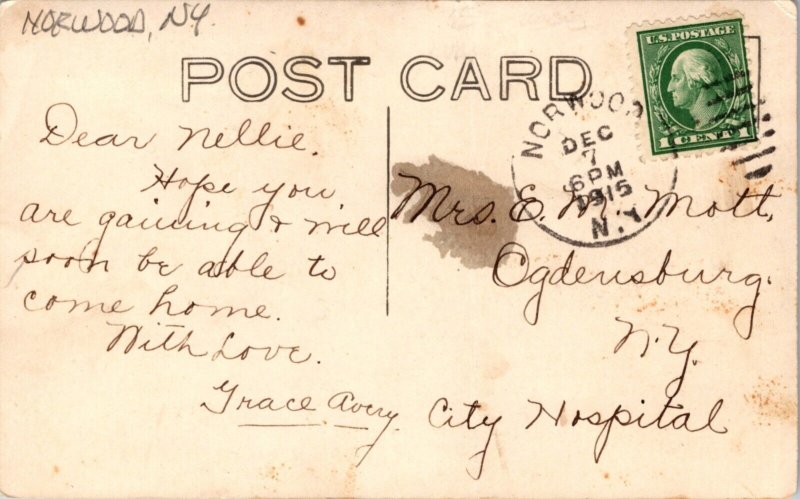 NORWOOD, NY.
POST CARD
U.S. POSTAGE
1 CENT 1
NORWOOD
DEC
7
6 PM
1915
N.Y.
Dear Nellie.
Hope you
are gaining & will
soon be able to
come home.
With Love.
Grace Avery.
Mrs. E. M. Mott,
Ogdensburg.
N.Y.
City Hospital